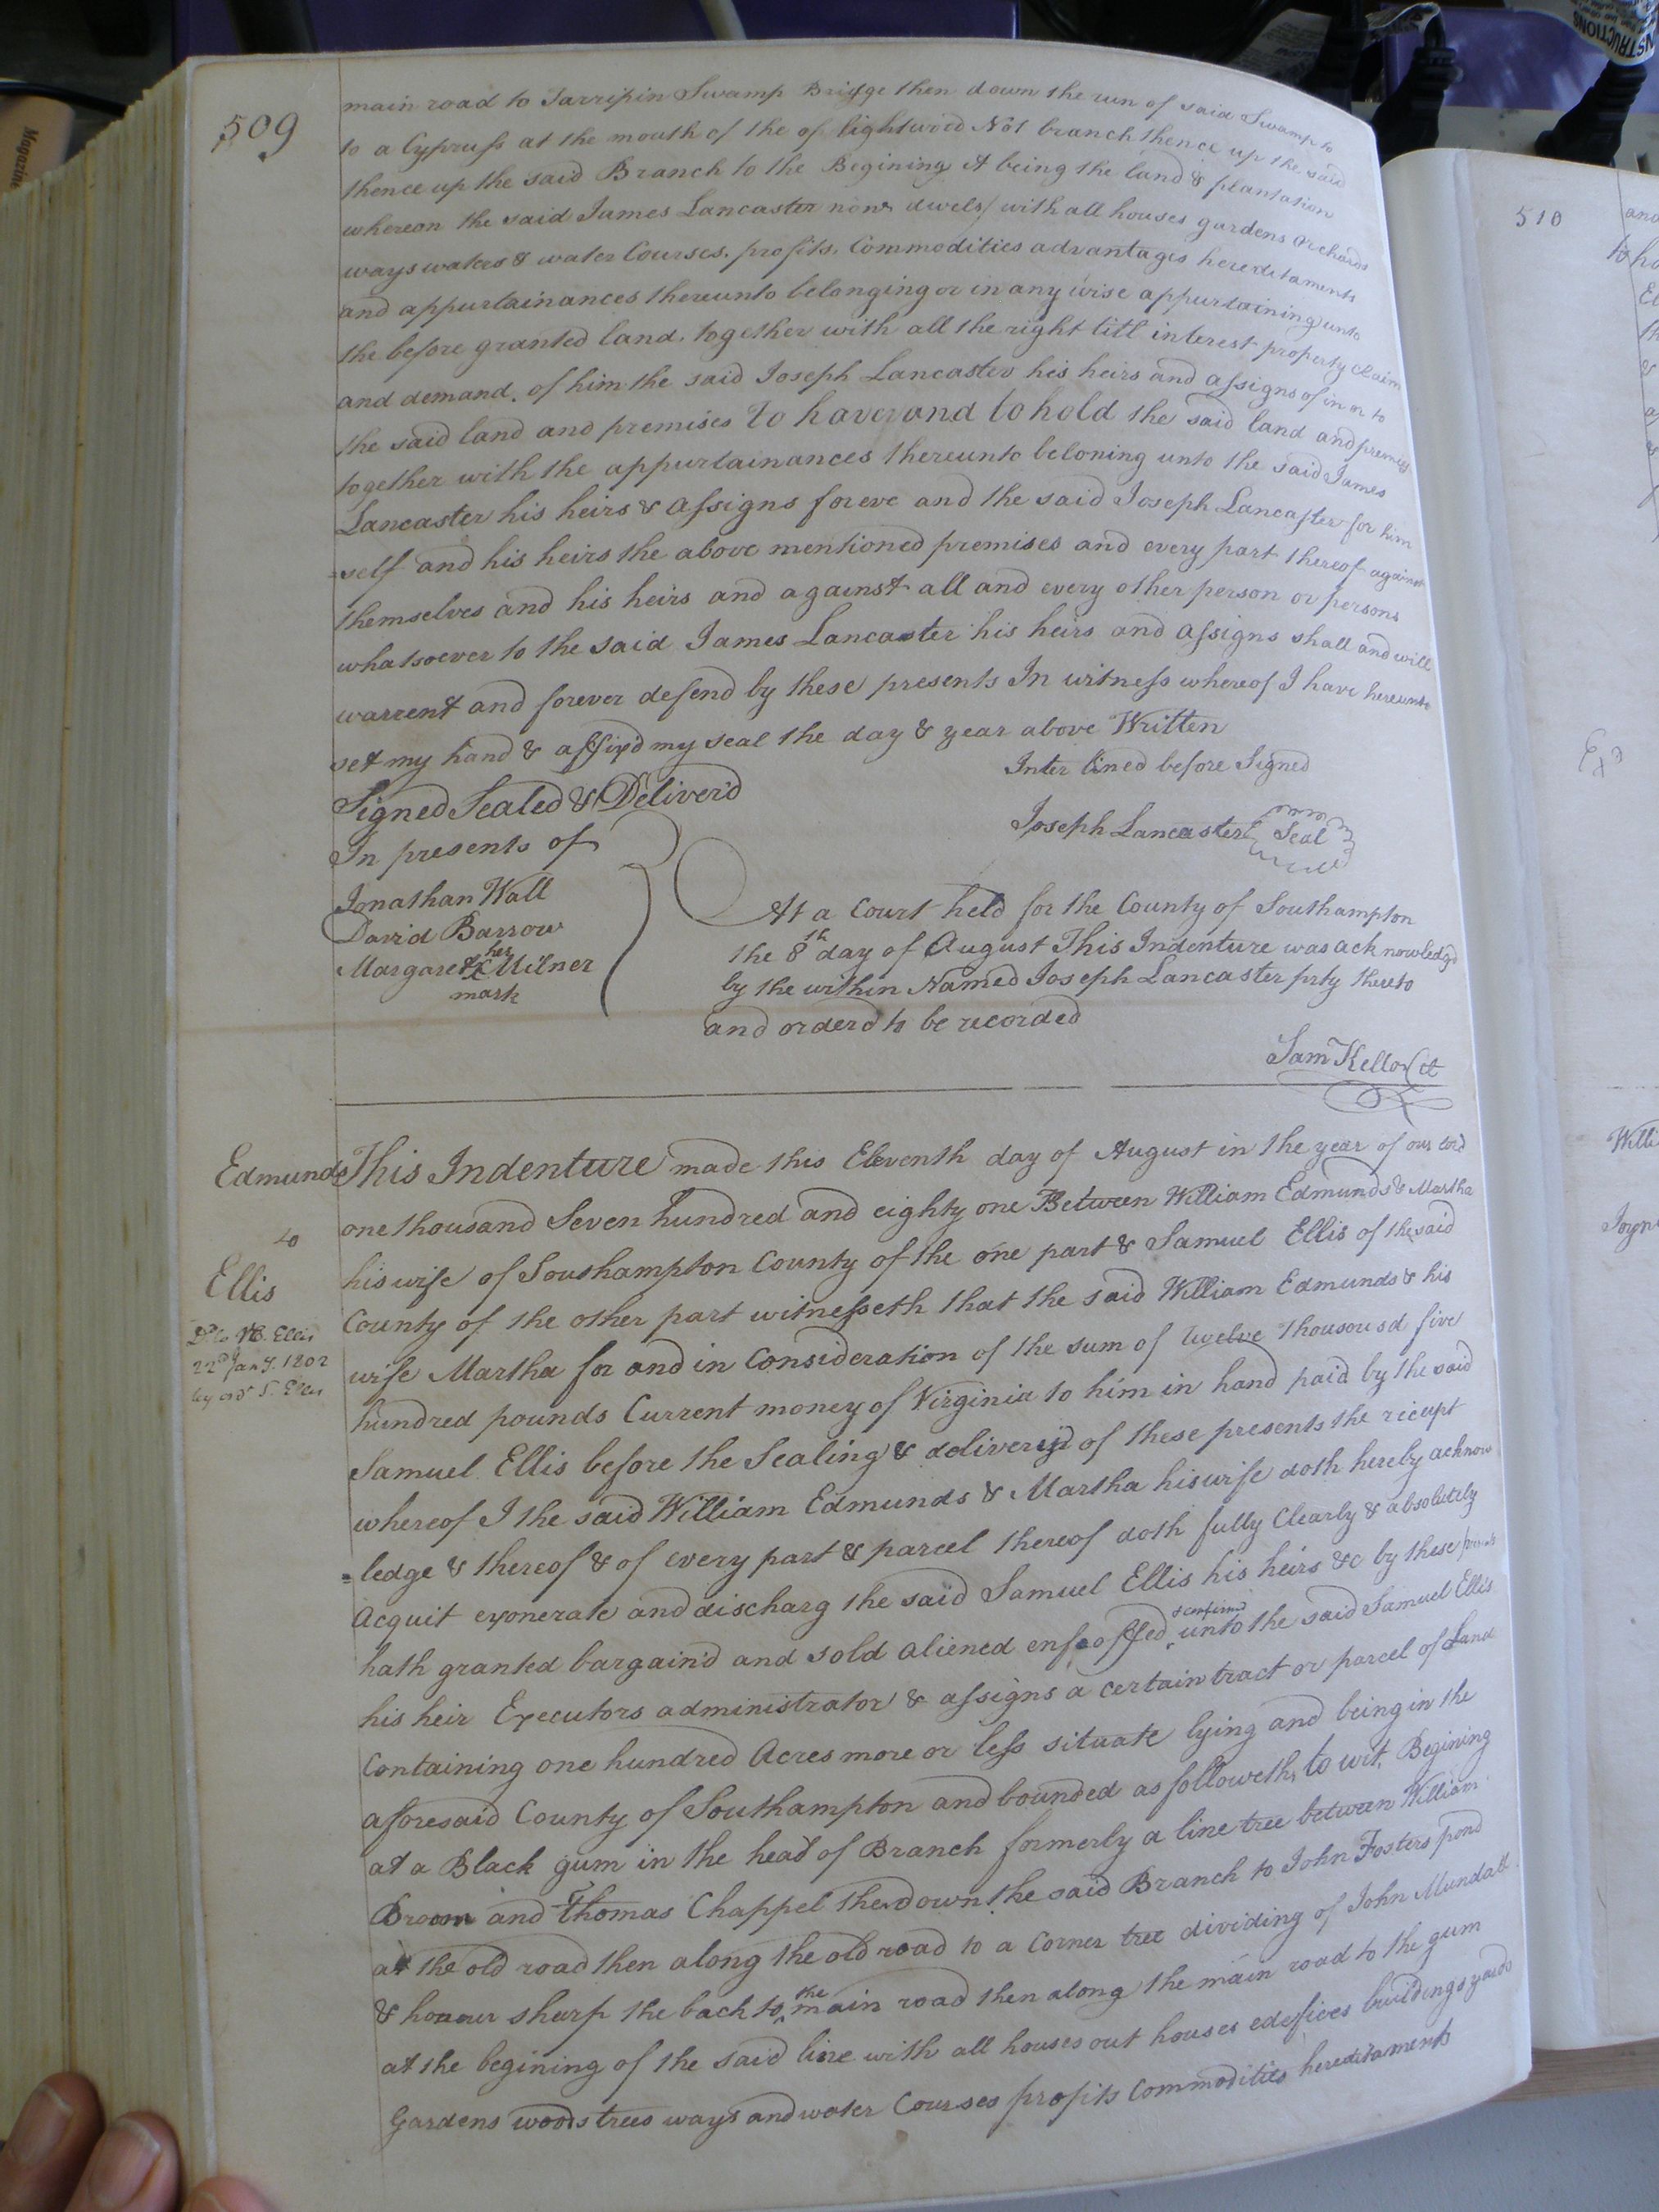 509
main road to Tarripin Swamp Bridge then down the run of said Swamp to
to a Cypruss at the mouth of the of lightwood Not branch thence up the said
thence up the said Branch to the Begining it being the land & plantation
whereon the said James Lancaster now dwels with all houses gardens orchards
ways waters & water Courses. profits, Commodities advantages hereditaments
and appurtainances thereunto belonging or in any wise appurtaining unto
the before granted land, together with all the right titl interest property claim
and demand, of him the said Joseph Lancaster his heirs and assigns of in or to
the said land and premises To have and to hold the said land and premises
together with the appurtainances thereunto beloning unto the said James
Lancaster his heirs & assigns foreve and the said Joseph Lancaster for him
=self and his heirs the above mentioned premises and every part thereof against
themselves and his heirs and against all and every other person or persons
whatsoever to the said James Lancaster his heirs and assigns shall and will
warrent and forever defend by these presents In witness whereof I have hereunto
set my hand & affix'd my seal the day & year above Written
Inter lined before Signed
Signed Sealed & Deliver'd
In presents of
Joseph Lancaster Seal
Jonathan Wall
David Barrow
her
Margaret X Milner
mark
At a Court held for the County of Southampton
the 8th day of August This Indenture was acknowledgd
by the within Named Joseph Lancaster prty thereto
and orderd to be recorded
Sam Kello Ct
Edmunds
to
Ellis
22d Jany. 1802
This Indenture made this Eleventh day of August in the year of our lord
one thousand Seven hundred and eighty one Between William Edmunds & Martha
his wife of Southampton County of the one part & Samuel Ellis of the said
County of the other part witnesseth that the said William Edmunds & his
wife Martha for and in Consideration of the sum of twelve thousousd five
hundred pounds Current money of Virginia to him in hand paid by the said
Samuel Ellis before the Sealing & deliveryd of these presents the riceept
whereof I the said William Edmunds & Martha his wife doth hereby acknow
=ledge & thereof & of every part & parcel thereof doth fully Clearly & absolutely
Acquit exonerate and discharg the said Samuel Ellis his heirs &c by these presents
hath granted bargain'd and sold aliened enfeoffed & confirmd unto the said Samuel Ellis
his heir Executors administrator & assigns a certain tract or parcel of Land
Containing one hundred Acres more or less situate lying and being in the
aforesaid County of Southampton and bounded as followeth, to wit, Begining
at a Black gum in the head of Branch formerly a line tree between William
Broom and Thomas Chappel then down the said Branch to John Fosters pond
at the old road then along the old road to a Corner tree dividing of John Mundall
& honour sharp the back to the main road then along the main road to the gum
at the begining of the said line with all houses out houses edefices buildings yards
Gardens woods trees ways and water Courses profits Commodities hereditaments
510